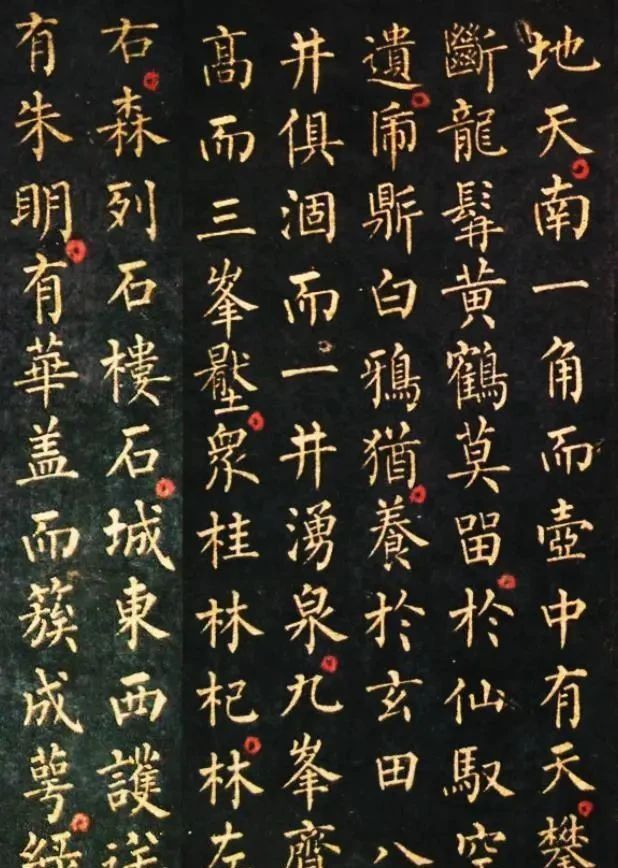 地天南一角而壺中有天樊
斷龍髯黃鶴莫留於仙馭空
遺鼎白鴉猶養於玄田八
井俱涸而一井湧泉九峯齊
髙而三峯壓衆桂林杞林左
右森列石樓石城東西護送
有朱眀有華盖而簇成萼綠